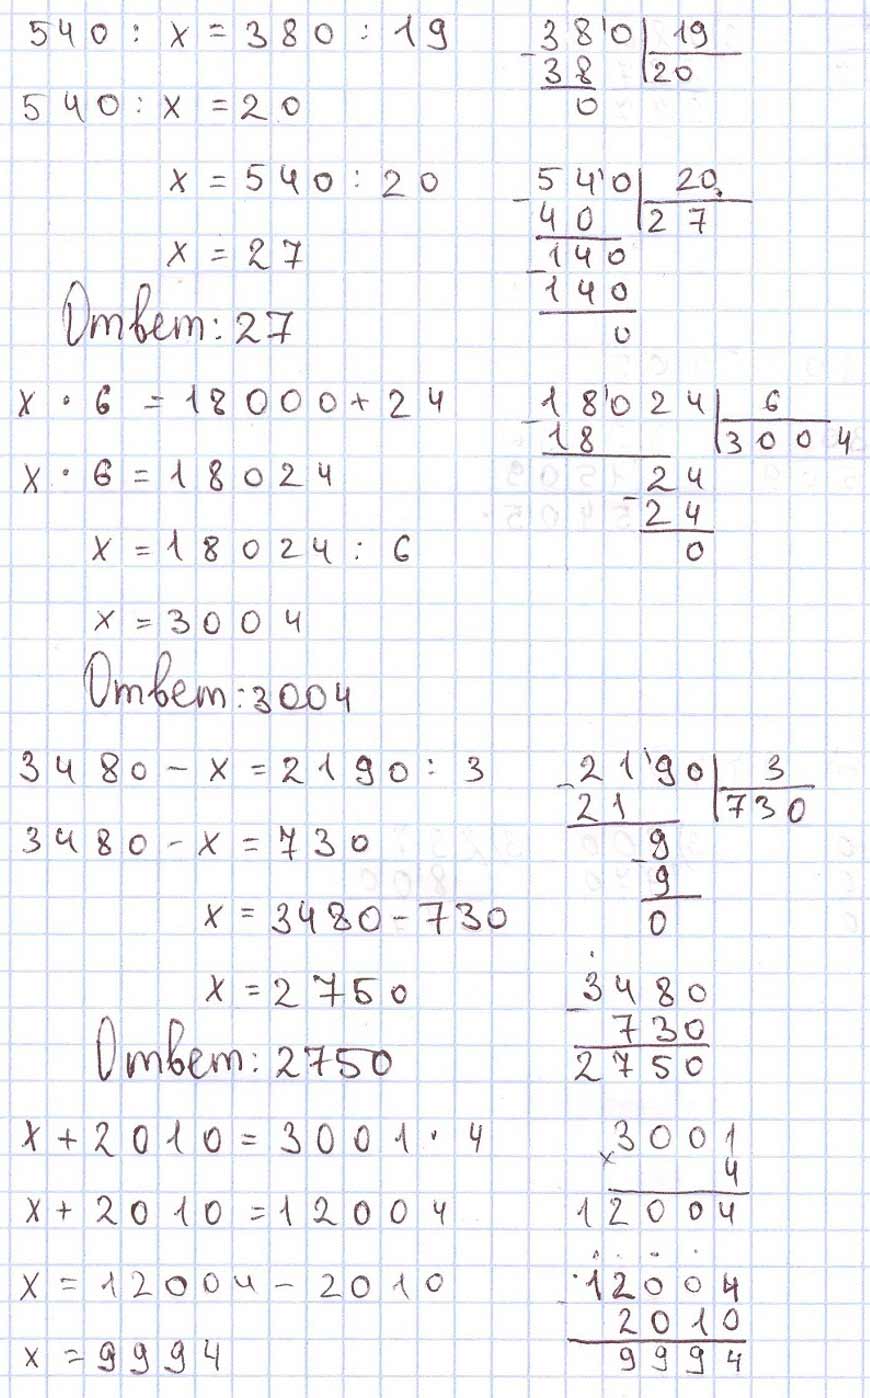 540 : x = 380 : 19
540 : x = 20
x = 540 : 20
x = 27
Ответ: 27
380 | 19
38 | 20
0
540 | 20
40 | 27
140
140
0
x · 6 = 18000 + 24
x · 6 = 18024
x = 18024 : 6
x = 3004
Ответ: 3004
18024 | 6
18 | 3004
24
24
0
3480 - x = 2190 : 3
3480 - x = 730
x = 3480 - 730
x = 2750
Ответ: 2750
2190 | 3
21 | 730
9
9
0
3480
730
2750
x + 2010 = 3001 · 4
x + 2010 = 12004
x = 12004 - 2010
x = 9994
3001
× 4
12004
12004
2010
9994